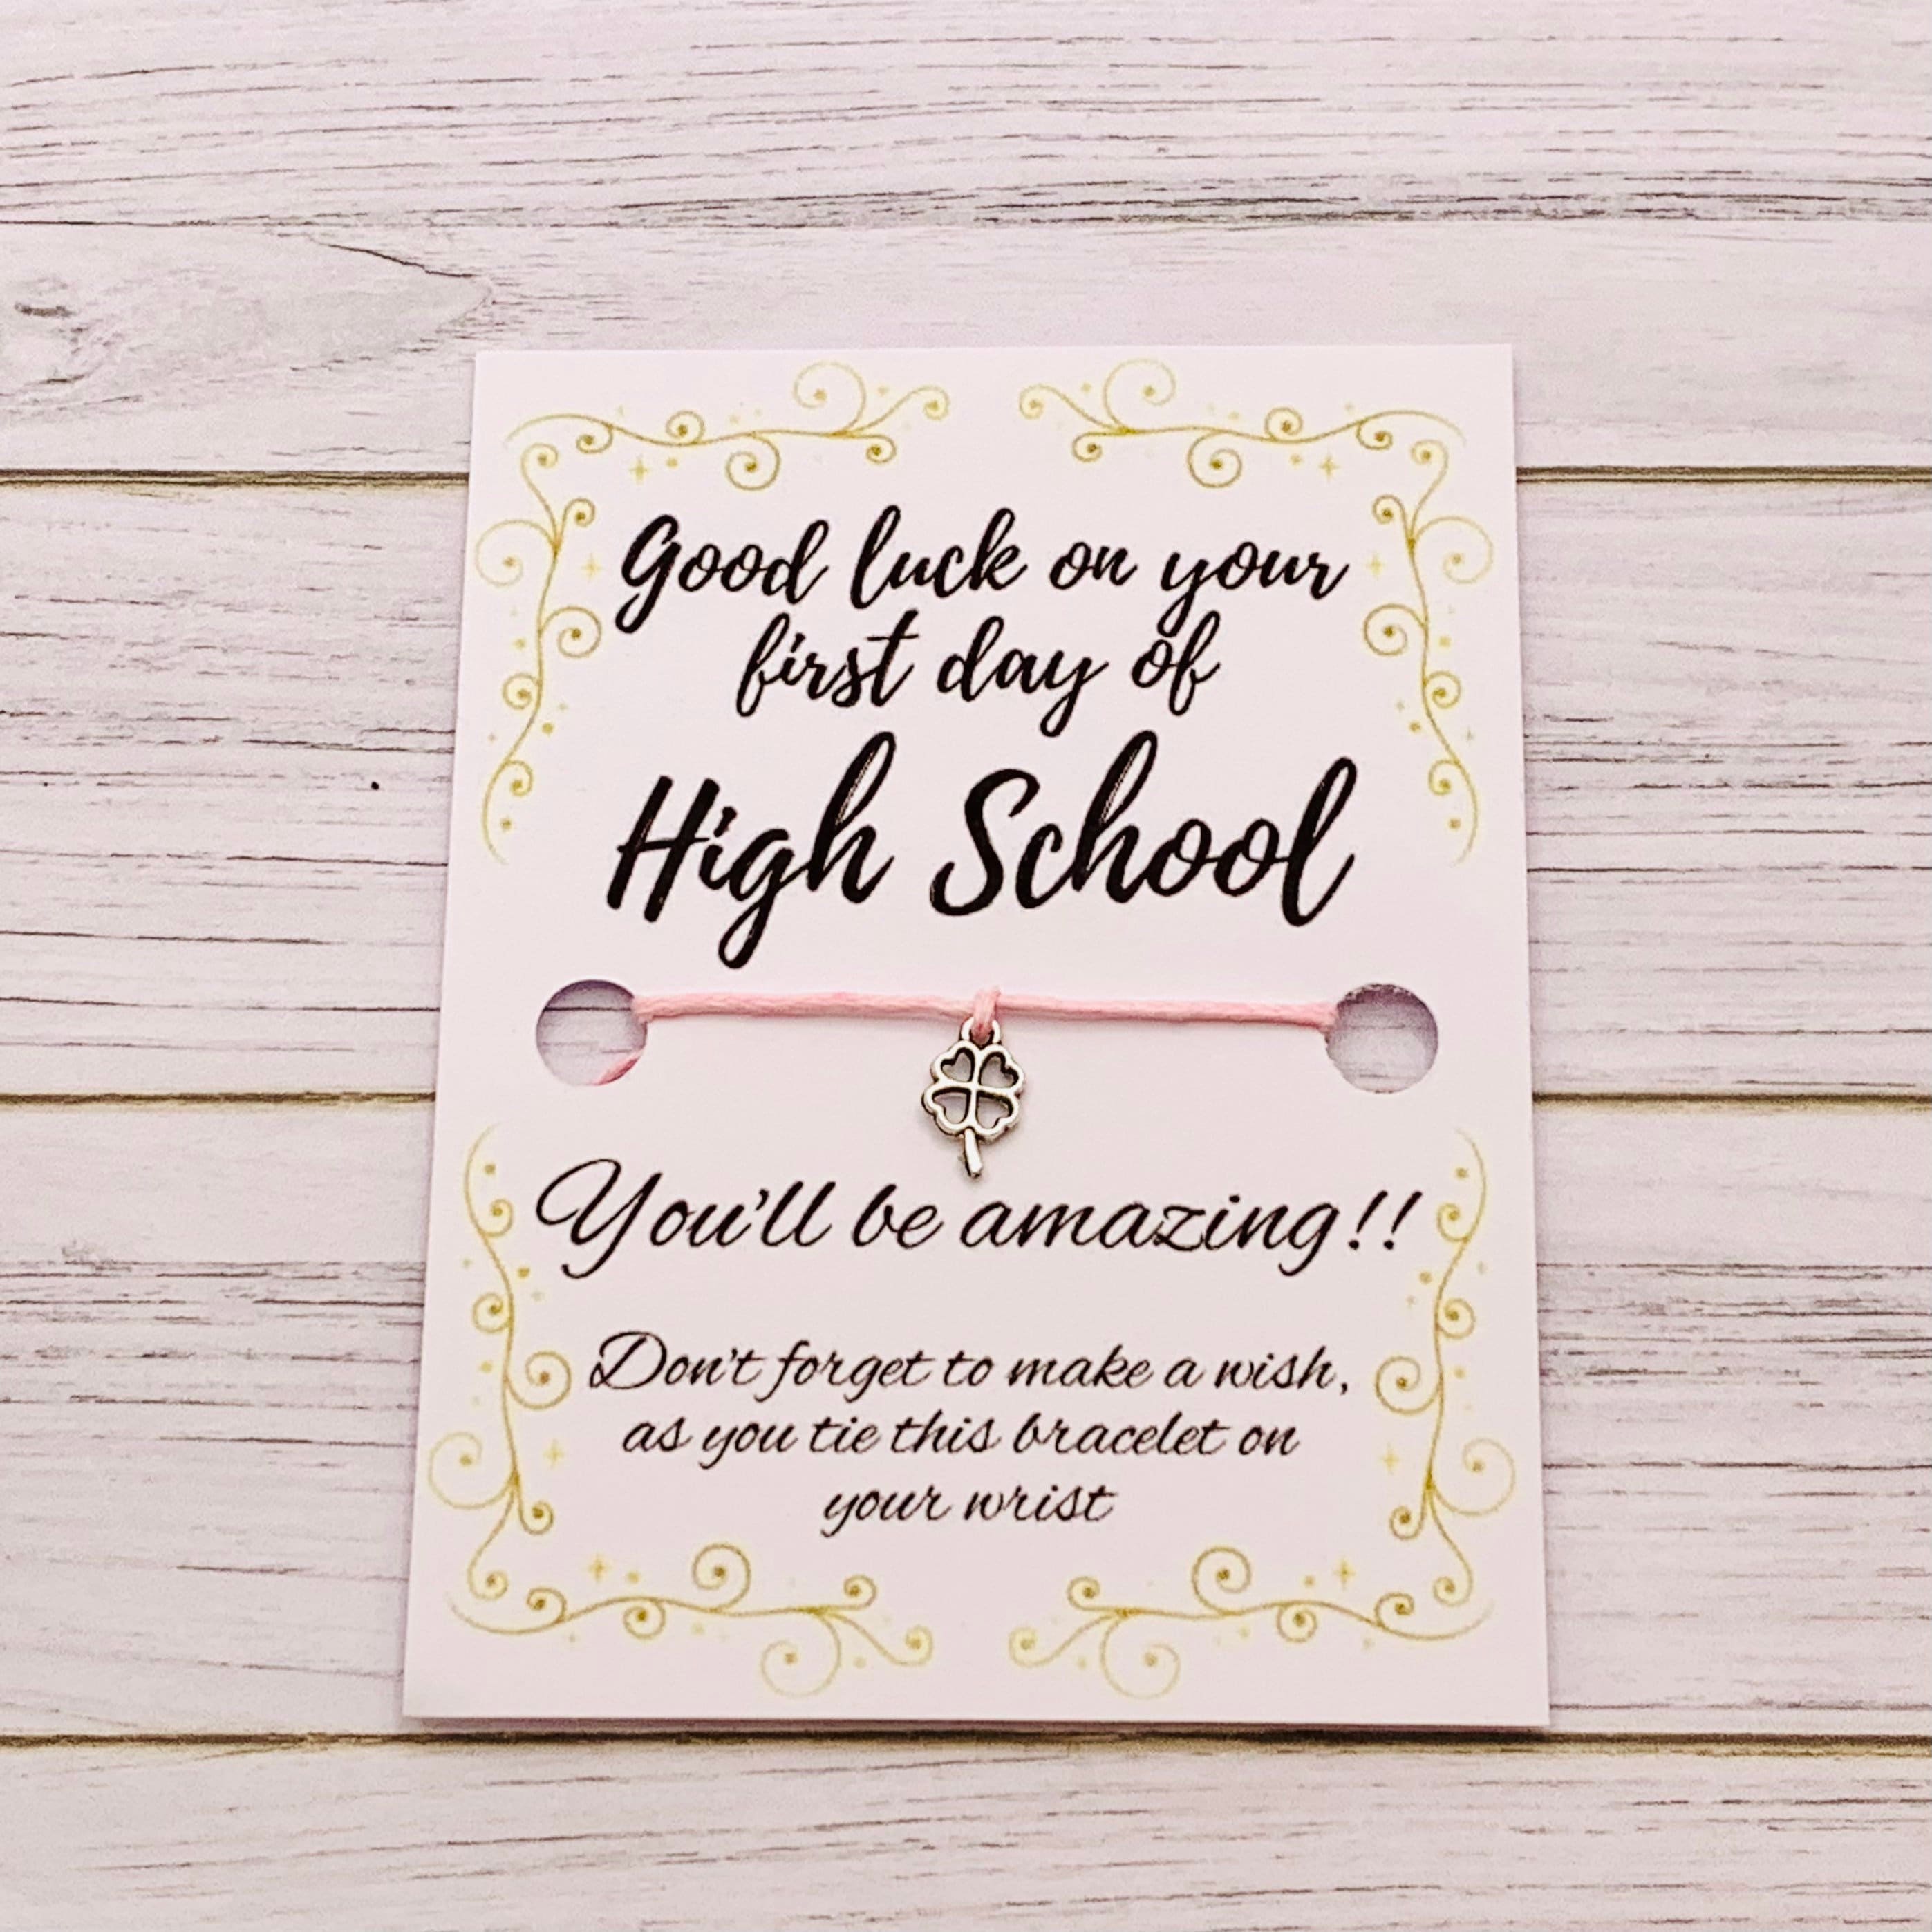 Good luck on your
first day of
High School
You'll be amazing!!
Don't forget to make a wish,
as you tie this bracelet on
your wrist